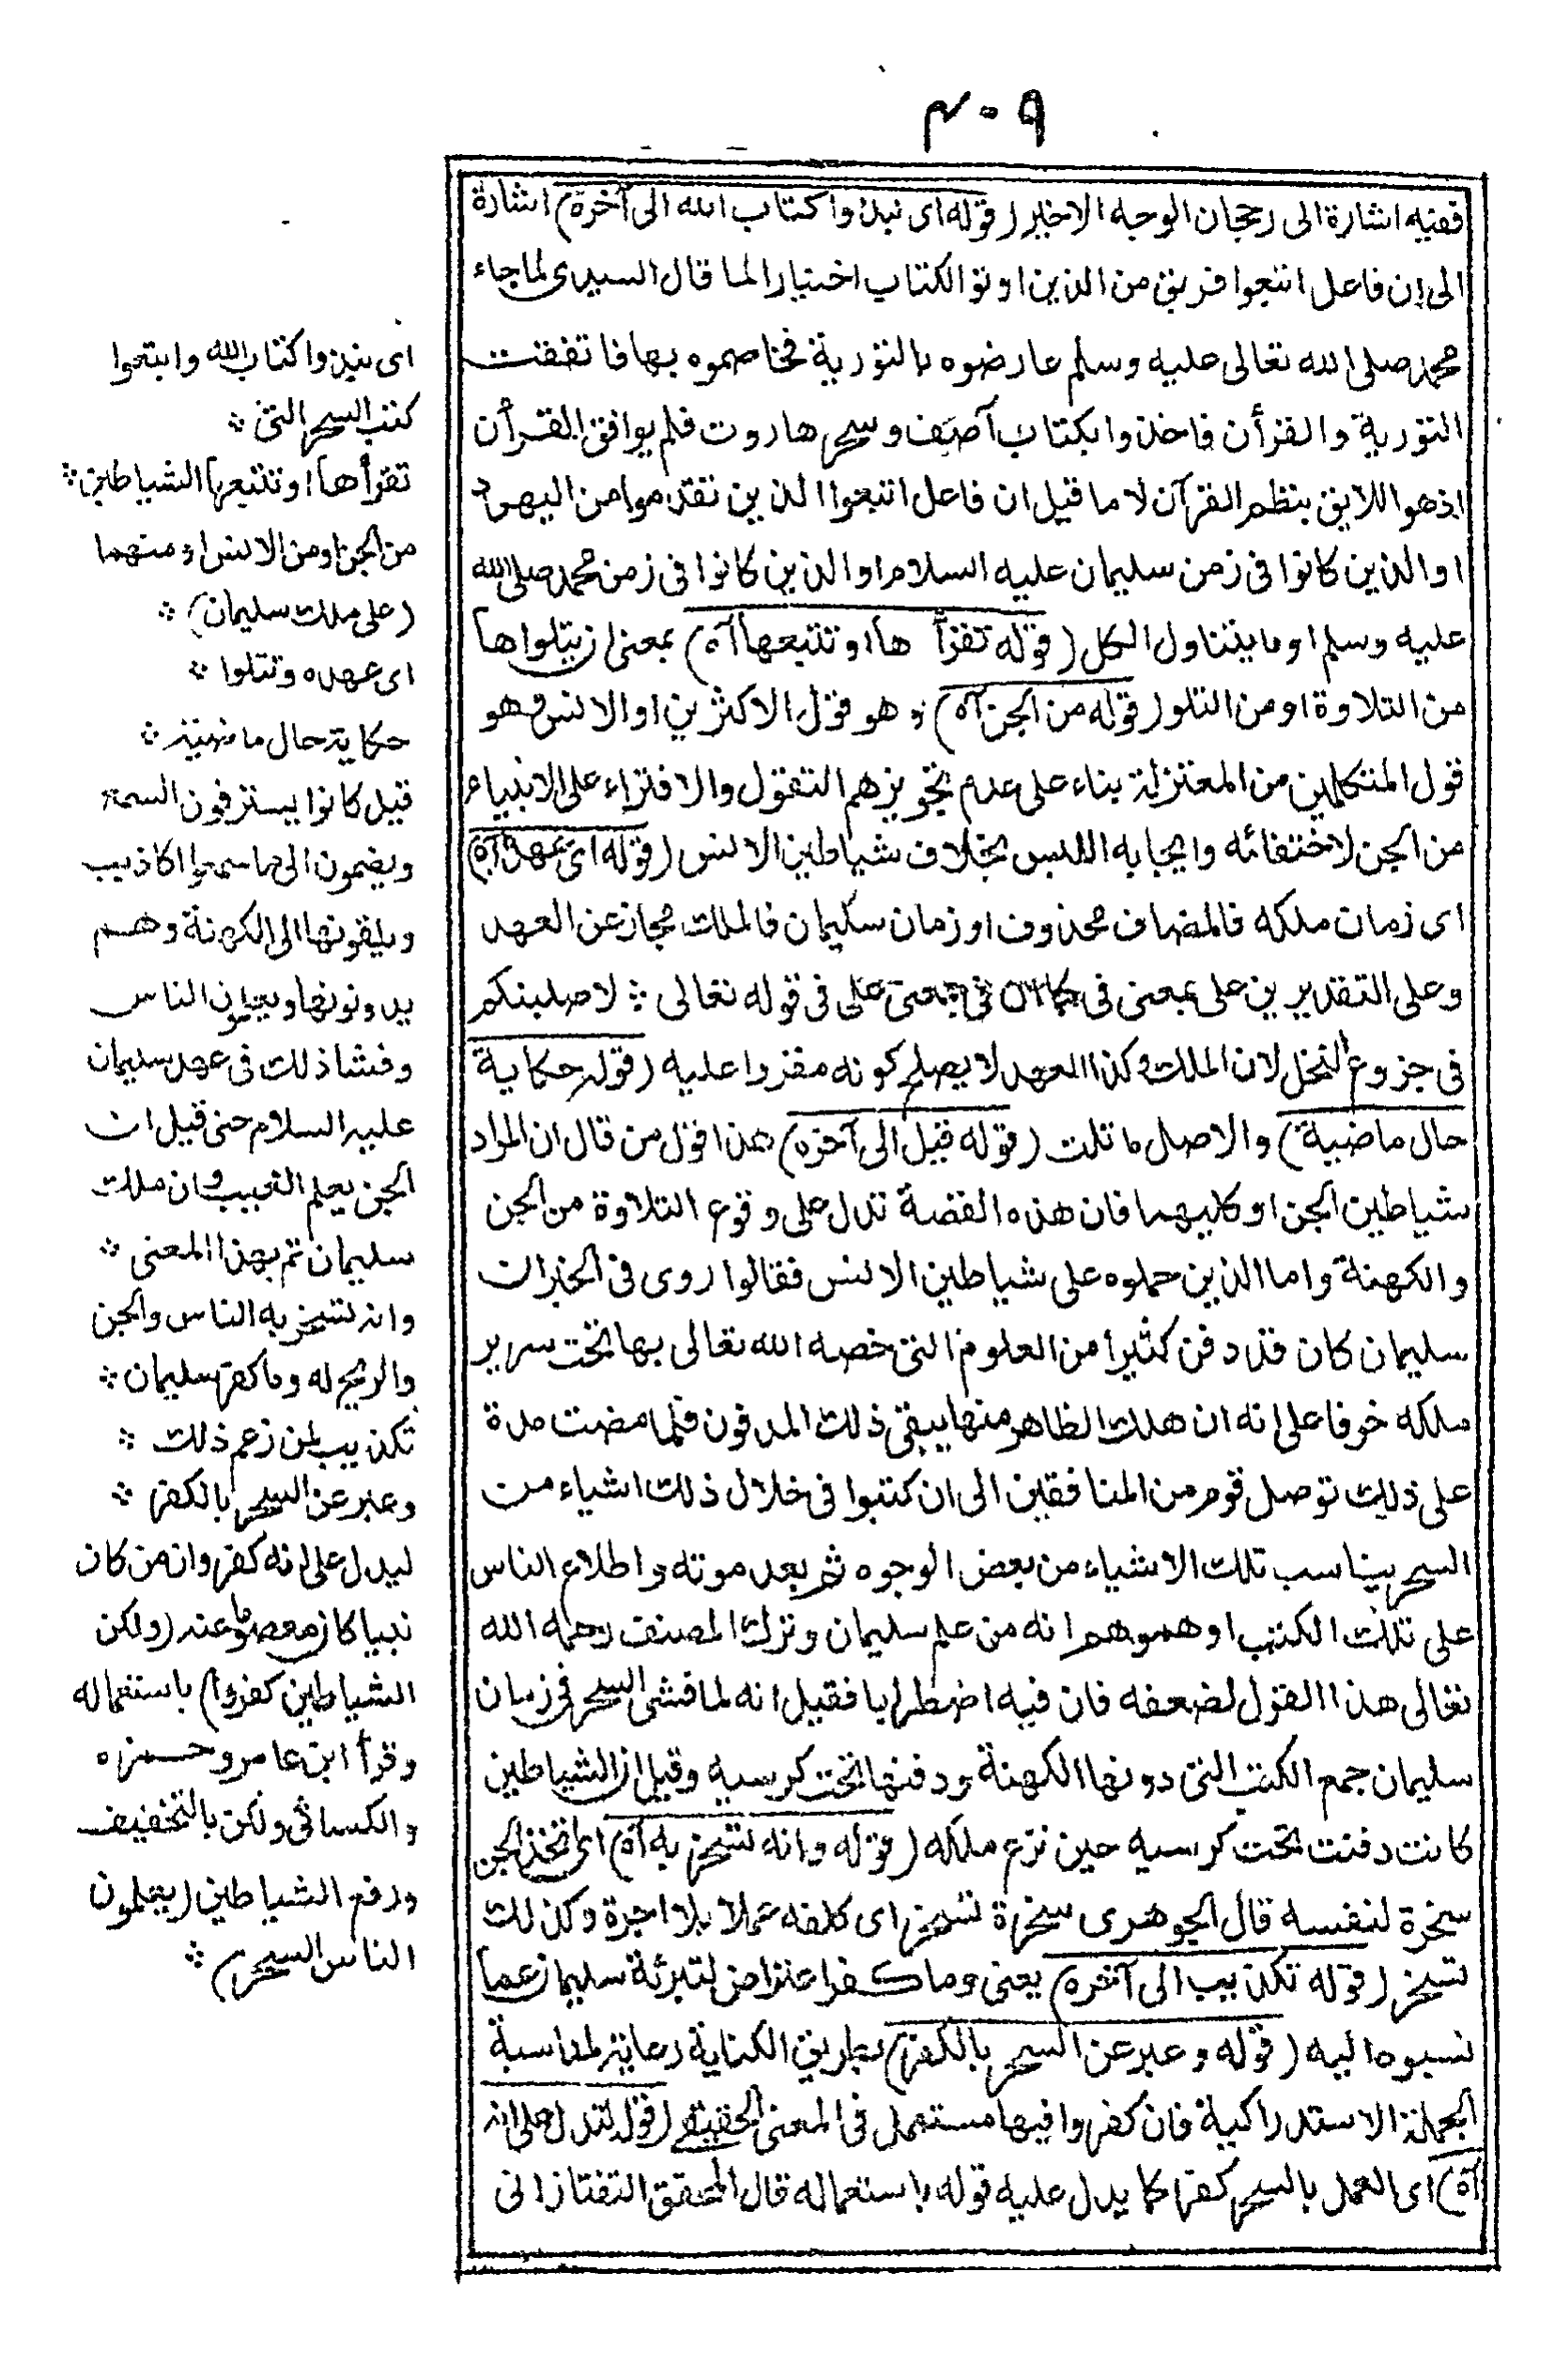 ٣٠٩
ففيه اشارة الى رجحان الوجه الاخير (قوله اى نبذوا كتاب الله الى آخره) اشارة
الى ان فاعل اتبعوا فريق من الذين اوتوا الكتاب اختيارا لما قال السدى لما جاء
محمد صلى الله تعالى عليه وسلم عارضوه بالتورية فخاصموه بها فاتفقت
التورية والقرأن فاخذوا بكتاب آصف وسحر هاروت فلم يوافق القرأن
اذ هو اللايق بنظم القرآن لا ما قيل ان فاعل اتبعوا الذين تقدموا من اليهود
او الذين كانوا فى زمن سليمان عليه السلام او الذين كانوا فى زمن محمد صلى الله
عليه وسلم او ما يتناول الكل (قوله تقرأ ها او تتبعها آه) بمعنى ان يتلوا ها
من التلاوة او من التلو (قوله من الجن آه) وهو قول الاكثرين او الانس وهو
قول المتكلمين من المعتزلة بناء على عدم تجويزهم التقول والافتراء على الانبياء
من الجن لاختفائه وايجابه اللبس بخلاف شياطين الانس (قوله اى عهده آه)
اى زمان ملكه فالمضاف محذوف او زمان سليمان فالملك مجاز عن العهد
وعلى التقديرين على بمعنى فى كما ان فى بمعنى على فى قوله تعالى ؞ لاصلبنكم
فى جزوع النخل لان الملك وكذا العهد لا يصلح كونه مقروا عليه (قوله حكاية
حال ماضية) والاصل ما تلت (قوله قيل الى آخره) هذا قول من قال ان المراد
شياطين الجن او كليهما فان هذه القصة تدل على وقوع التلاوة من الجن
والكهنة واما الذين حملوه على شياطين الانس فقالوا روى فى الخبر ان
سليمان كان قد دفن كثيرا من العلوم التى خصه الله تعالى بها تحت سرير
ملكه خوفا على انه ان هلك الظاهر منها يبقى ذلك المدفون فلما مضت مدة
على ذلك توصل قوم من المنافقين الى ان كتبوا فى خلال ذلك اشياء من
السحر يناسب تلك الاشياء من بعض الوجوه ثم بعد موته واطلاع الناس
على تلك الكتب اوهموهم انه من علم سليمان وترك المصنف رحمه الله
تعالى هذا القول لضعفه فان فيه اضطرابا فقيل انه لما فشى السحر فى زمان
سليمان جمع الكتب التى دونها الكهنة ودفنها تحت كرسيه وقيل ان الشياطين
كانت دفنت تحت كرسيه حين نزع ملكه (قوله وانه تسخر به آه) اى اتخذ الجن
سخرة لنفسه قال الجوهرى سخرة تسخر اى كلفه عملا بلا اجرة وكذلك
تسخر (قوله تكذيب الى آخره) يعنى وما كفر اعتراض لتبرئة سليمان عما
نسبوه اليه (قوله وعبر عن السحر بالكفر) بطريق الكناية رعاية لمناسبة
الجملة الاستدراكية فان كفروا فيها مستعمل فى المعنى الحقيقى (قوله لتدل على انه
آه) اى العمل بالسحر كفر كما يدل عليه قوله باستعماله قال المحقق التفتازانى
اى نبذوا كتاب الله واتبعوا
كتب السحر التى ؞
تقرأها او تتبعها الشياطين ؞
من الجن او من الانس او منهما
(على ملك سليمان) ؞
اى عهده وتتلوا ؞
حكاية حال ماضية ؞
قيل كانوا يسترقون السمع
ويضمون الى ما سمعوا اكاذيب
ويلقونها الى الكهنة وهم
يدونونها ويعلمون الناس
وفشا ذلك فى عهد سليمان
عليه السلام حتى قيل ان
الجن يعلم الغيب وان ملك
سليمان تم بهذا المعنى ؞
وانه تسخر به الناس والجن
والريح له وما كفر سليمان ؞
تكذيب لمن زعم ذلك ؞
وعبر عن السحر بالكفر ؞
ليدل على انه كفر وان من كان
نبيا كان معصوما عنه (ولكن
الشياطين كفروا) باستعماله
وقرأ ابن عامر وحمزه
والكسائى ولكن بالتخفيف
ورفع الشياطين (يعلمون
الناس السحر) ؞